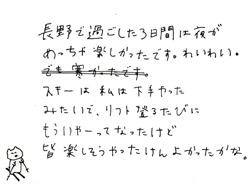 長野で過ごした3日間は夜が
めっちゃ楽しかったです。わいわい。
でも寒かったです。
スキーは私は下手やった
みたいで、リフト登るたびに
もういやーってなったけど
皆楽しそうやったけんよかったかな。